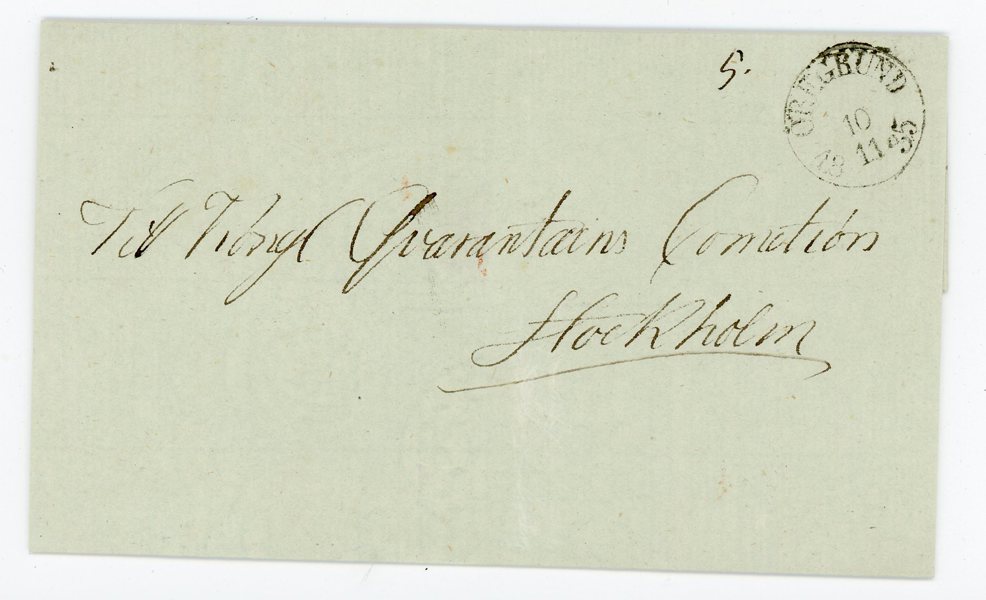 5.
ÖREGRUND
10
11
1835
Till Kongl Qvarantains Comction
Stockholm